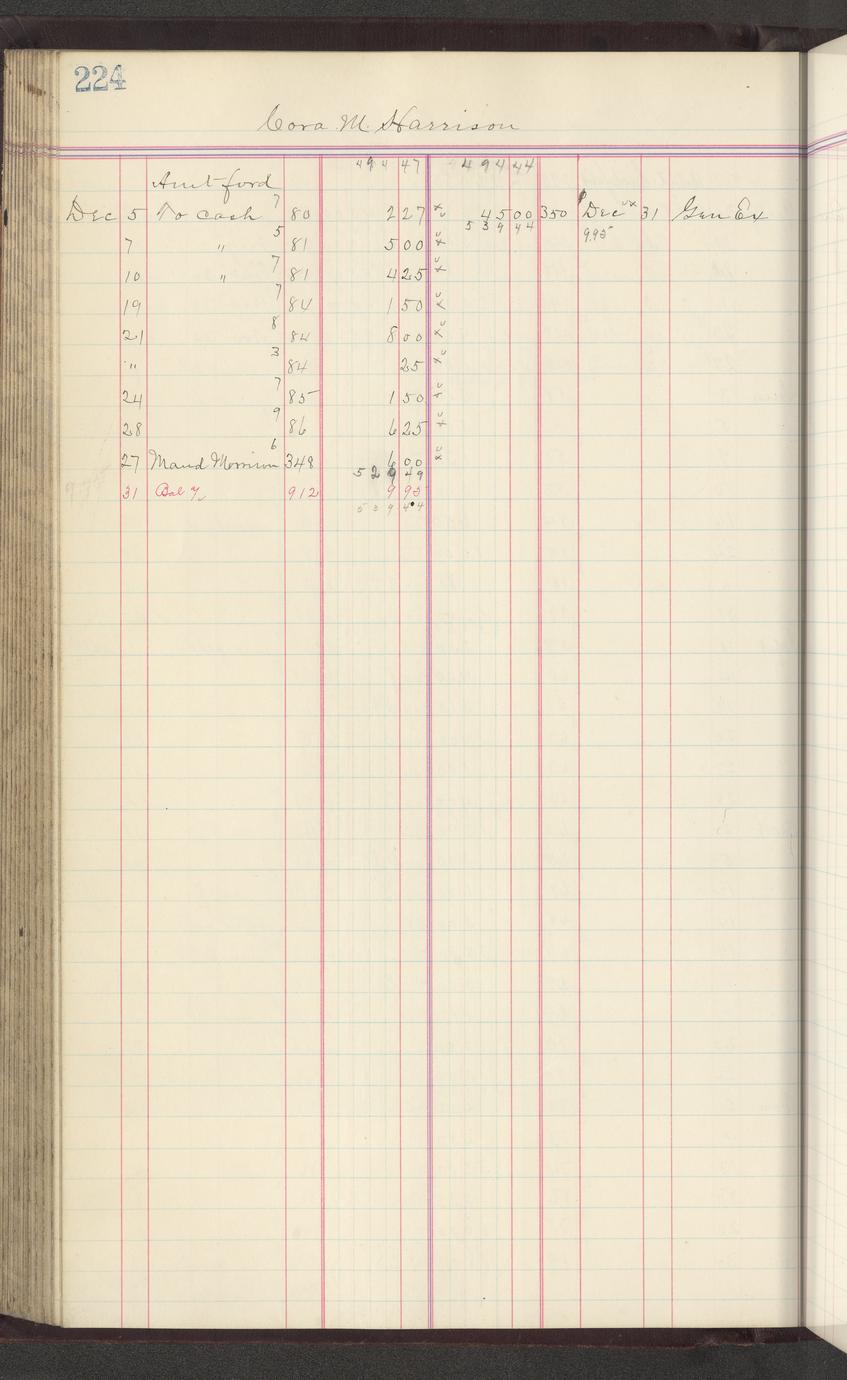 224
Cora M. Harrison
Amt ford 494 47 494 44
Dec 5 To cash 7 80 2 27 45 00 350 Dec 31 Gen Ex
539 44 9.95
7 " 5 81 5 00
10 " 7 81 4 25
19 7 84 1 50
21 8 84 8 00
" 3 84 25
24 7 85 1 50
28 9 86 6 25
27 Maud Morrison 6 348 6 00
529 49
31 Bal 912 9 95
539 44